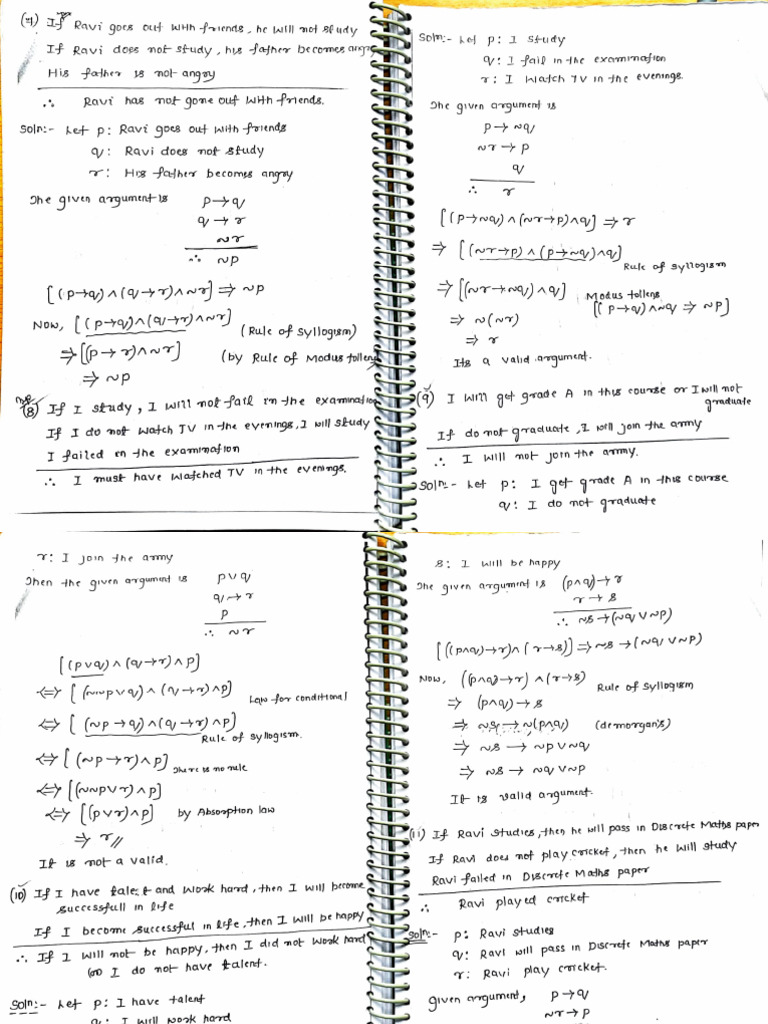 (7) If Ravi goes out with friends, he will not study
If Ravi does not study, his father becomes angry
His father is not angry
∴ Ravi has not gone out with friends.
Soln:- Let p: Ravi goes out with friends
q: Ravi does not study
r: His father becomes angry
The given argument is p→q
q→r
~r
∴ ~p
[(p→q)∧(q→r)∧~r] ⇒ ~p
Now, [(p→q)∧(q→r)∧~r] (Rule of Syllogism)
⇒ [(p→r)∧~r] (by Rule of Modus tollens)
⇒ ~p
(8) If I study, I will not fail in the examination
If I do not watch TV in the evenings, I will study
I failed in the examination
∴ I must have watched TV in the evenings.
Soln:- Let p: I study
q: I fail in the examination
r: I watch TV in the evenings.
The given argument is
p→~q
~r→p
q
∴ r
[(p→~q)∧(~r→p)∧q] ⇒ r
⇒ [(~r→p)∧(p→~q)∧q]
Rule of Syllogism
⇒ [(~r→~q)∧q] Modus tollens
[(p→q)∧~q ⇒ ~p]
⇒ ~(~r)
⇒ r
Its a valid argument.
(9) I will get grade A in this course or I will not
graduate
If do not graduate, I will join the army
∴ I will not join the army.
Soln:- Let p: I get grade A in this course
q: I do not graduate
r: I join the army
Then the given argument is p∨q
q→r
p
∴ ~r
[(p∨q)∧(q→r)∧p]
⇔ [(~~p∨q)∧(q→r)∧p] Law for conditional
⇔ [(~p→q)∧(q→r)∧p]
Rule of Syllogism.
⇔ [(~p→r)∧p] There is no rule
⇔ [(~~p∨r)∧p]
⇔ [(p∨r)∧p] by Absorption law
⇒ r//
It is not a valid.
(10) If I have talent and work hard, then I will become
successfull in life
If I become successful in life, then I will be happy
∴ If I will not be happy, then I did not work hard
(or) I do not have talent.
Soln:- Let p: I have talent
q: I will work hard
s: I will be happy
The given argument is (p∧q)→r
r→s
∴ ~s→(~q∨~p)
[((p∧q)→r)∧(r→s)] ⇒ ~s→(~q∨~p)
Now, ((p∧q)→r)∧(r→s) Rule of Syllogism
⇒ (p∧q)→s
⇒ ~s→~(p∧q) (demorgan's)
⇒ ~s→~p∨~q
⇒ ~s→~q∨~p
It is valid argument.
(11) If Ravi studies, then he will pass in Discrete Maths paper
If Ravi does not play cricket, then he will study
Ravi failed in Discrete Maths paper
∴ Ravi played cricket
Soln:- p: Ravi studies
q: Ravi will pass in Discrete Maths paper
r: Ravi play cricket.
given argument, p→q
~r→p